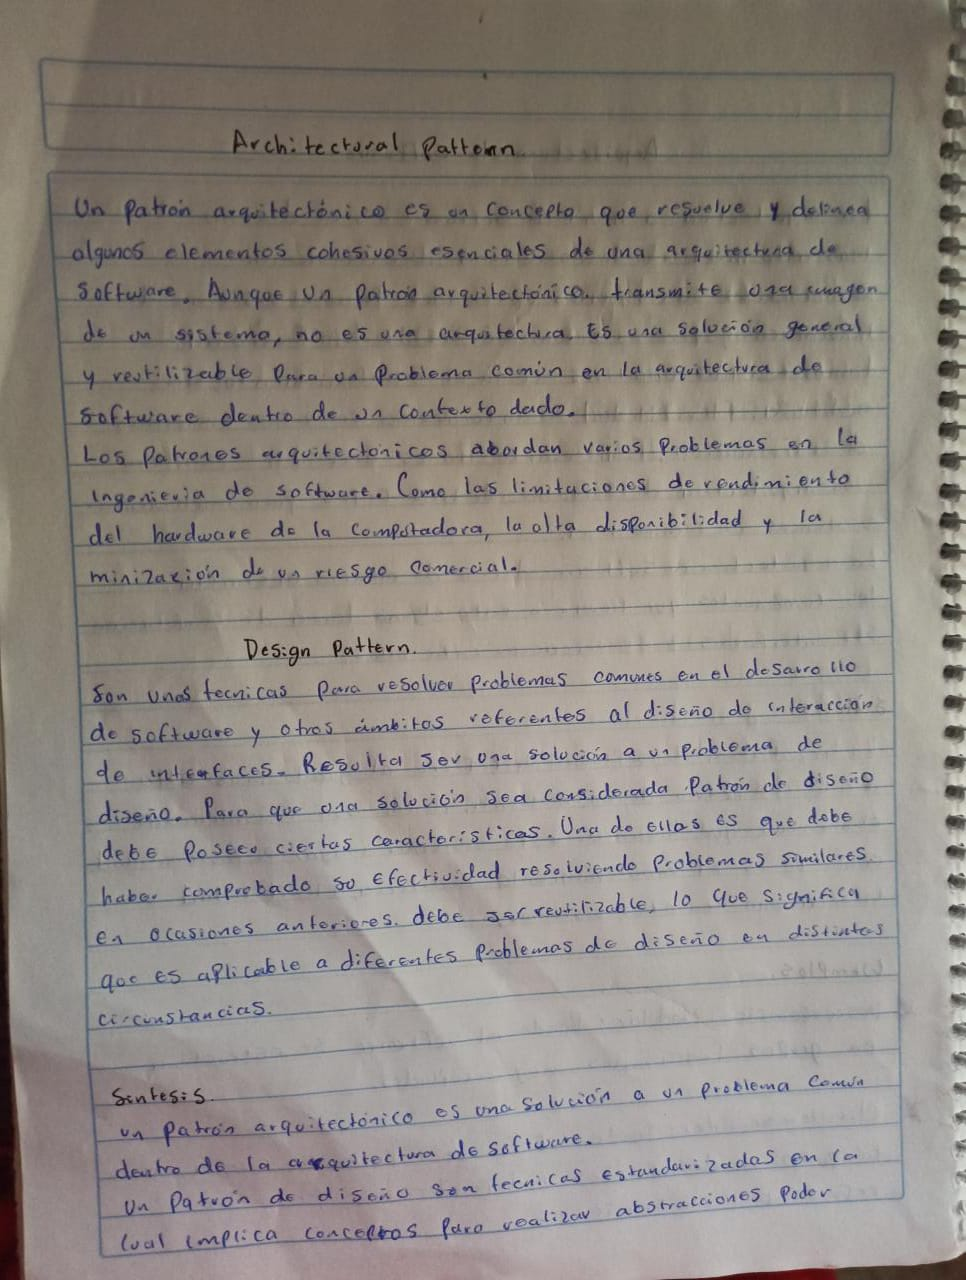 Architectural Pattern.
Un patrón arquitectónico es un concepto que resuelve y delinea
algunos elementos cohesivos esenciales de una arquitectura de
software. Aunque un patrón arquitectónico transmite una imagen
de un sistema, no es una arquitectura. Es una solución general
y reutilizable para un problema común en la arquitectura de
software dentro de un contexto dado.
Los patrones arquitectónicos abordan varios problemas en la
ingeniería de software. Como las limitaciones de rendimiento
del hardware de la computadora, la alta disponibilidad y la
minización de un riesgo comercial.
Design Pattern.
Son unas tecnicas para resolver problemas comunes en el desarrollo
de software y otros ámbitos referentes al diseño de interacción
de interfaces. Resulta ser una solución a un problema de
diseño. Para que una solución sea considerada patrón de diseño
debe poseer ciertas características. Una de ellas es que debe
haber comprobado su efectividad resolviendo problemas similares
en ocasiones anteriores. debe ser reutilizable, lo que significa
que es aplicable a diferentes problemas de diseño en distintas
circunstancias.
Sintesis.
un patrón arquitectónico es una solución a un problema común
dentro de la arquitectura de software.
Un patrón de diseño son tecnicas estandarizadas en la
cual implica conceptos para realizar abstracciones poder